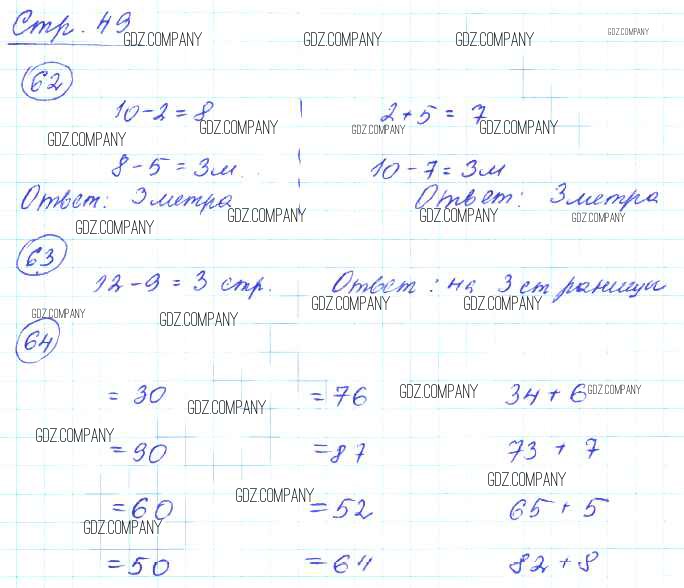 Стр. 49
GDZ.COMPANY GDZ.COMPANY GDZ.COMPANY GDZ.COMPANY
62
10-2=8 2+5=7
GDZ.COMPANY GDZ.COMPANY GDZ.COMPANY GDZ.COMPANY
8-5=3м. 10-7=3м
Ответ: 3 метра Ответ: 3 метра
GDZ.COMPANY GDZ.COMPANY GDZ.COMPANY GDZ.COMPANY
63
12-9=3 стр. Ответ: на 3 страницы
GDZ.COMPANY GDZ.COMPANY GDZ.COMPANY GDZ.COMPANY
64
=30 =76 34+6
GDZ.COMPANY GDZ.COMPANY GDZ.COMPANY
=90 =87 73+7
GDZ.COMPANY GDZ.COMPANY
=60 =52 65+5
GDZ.COMPANY GDZ.COMPANY
=50 =64 82+8